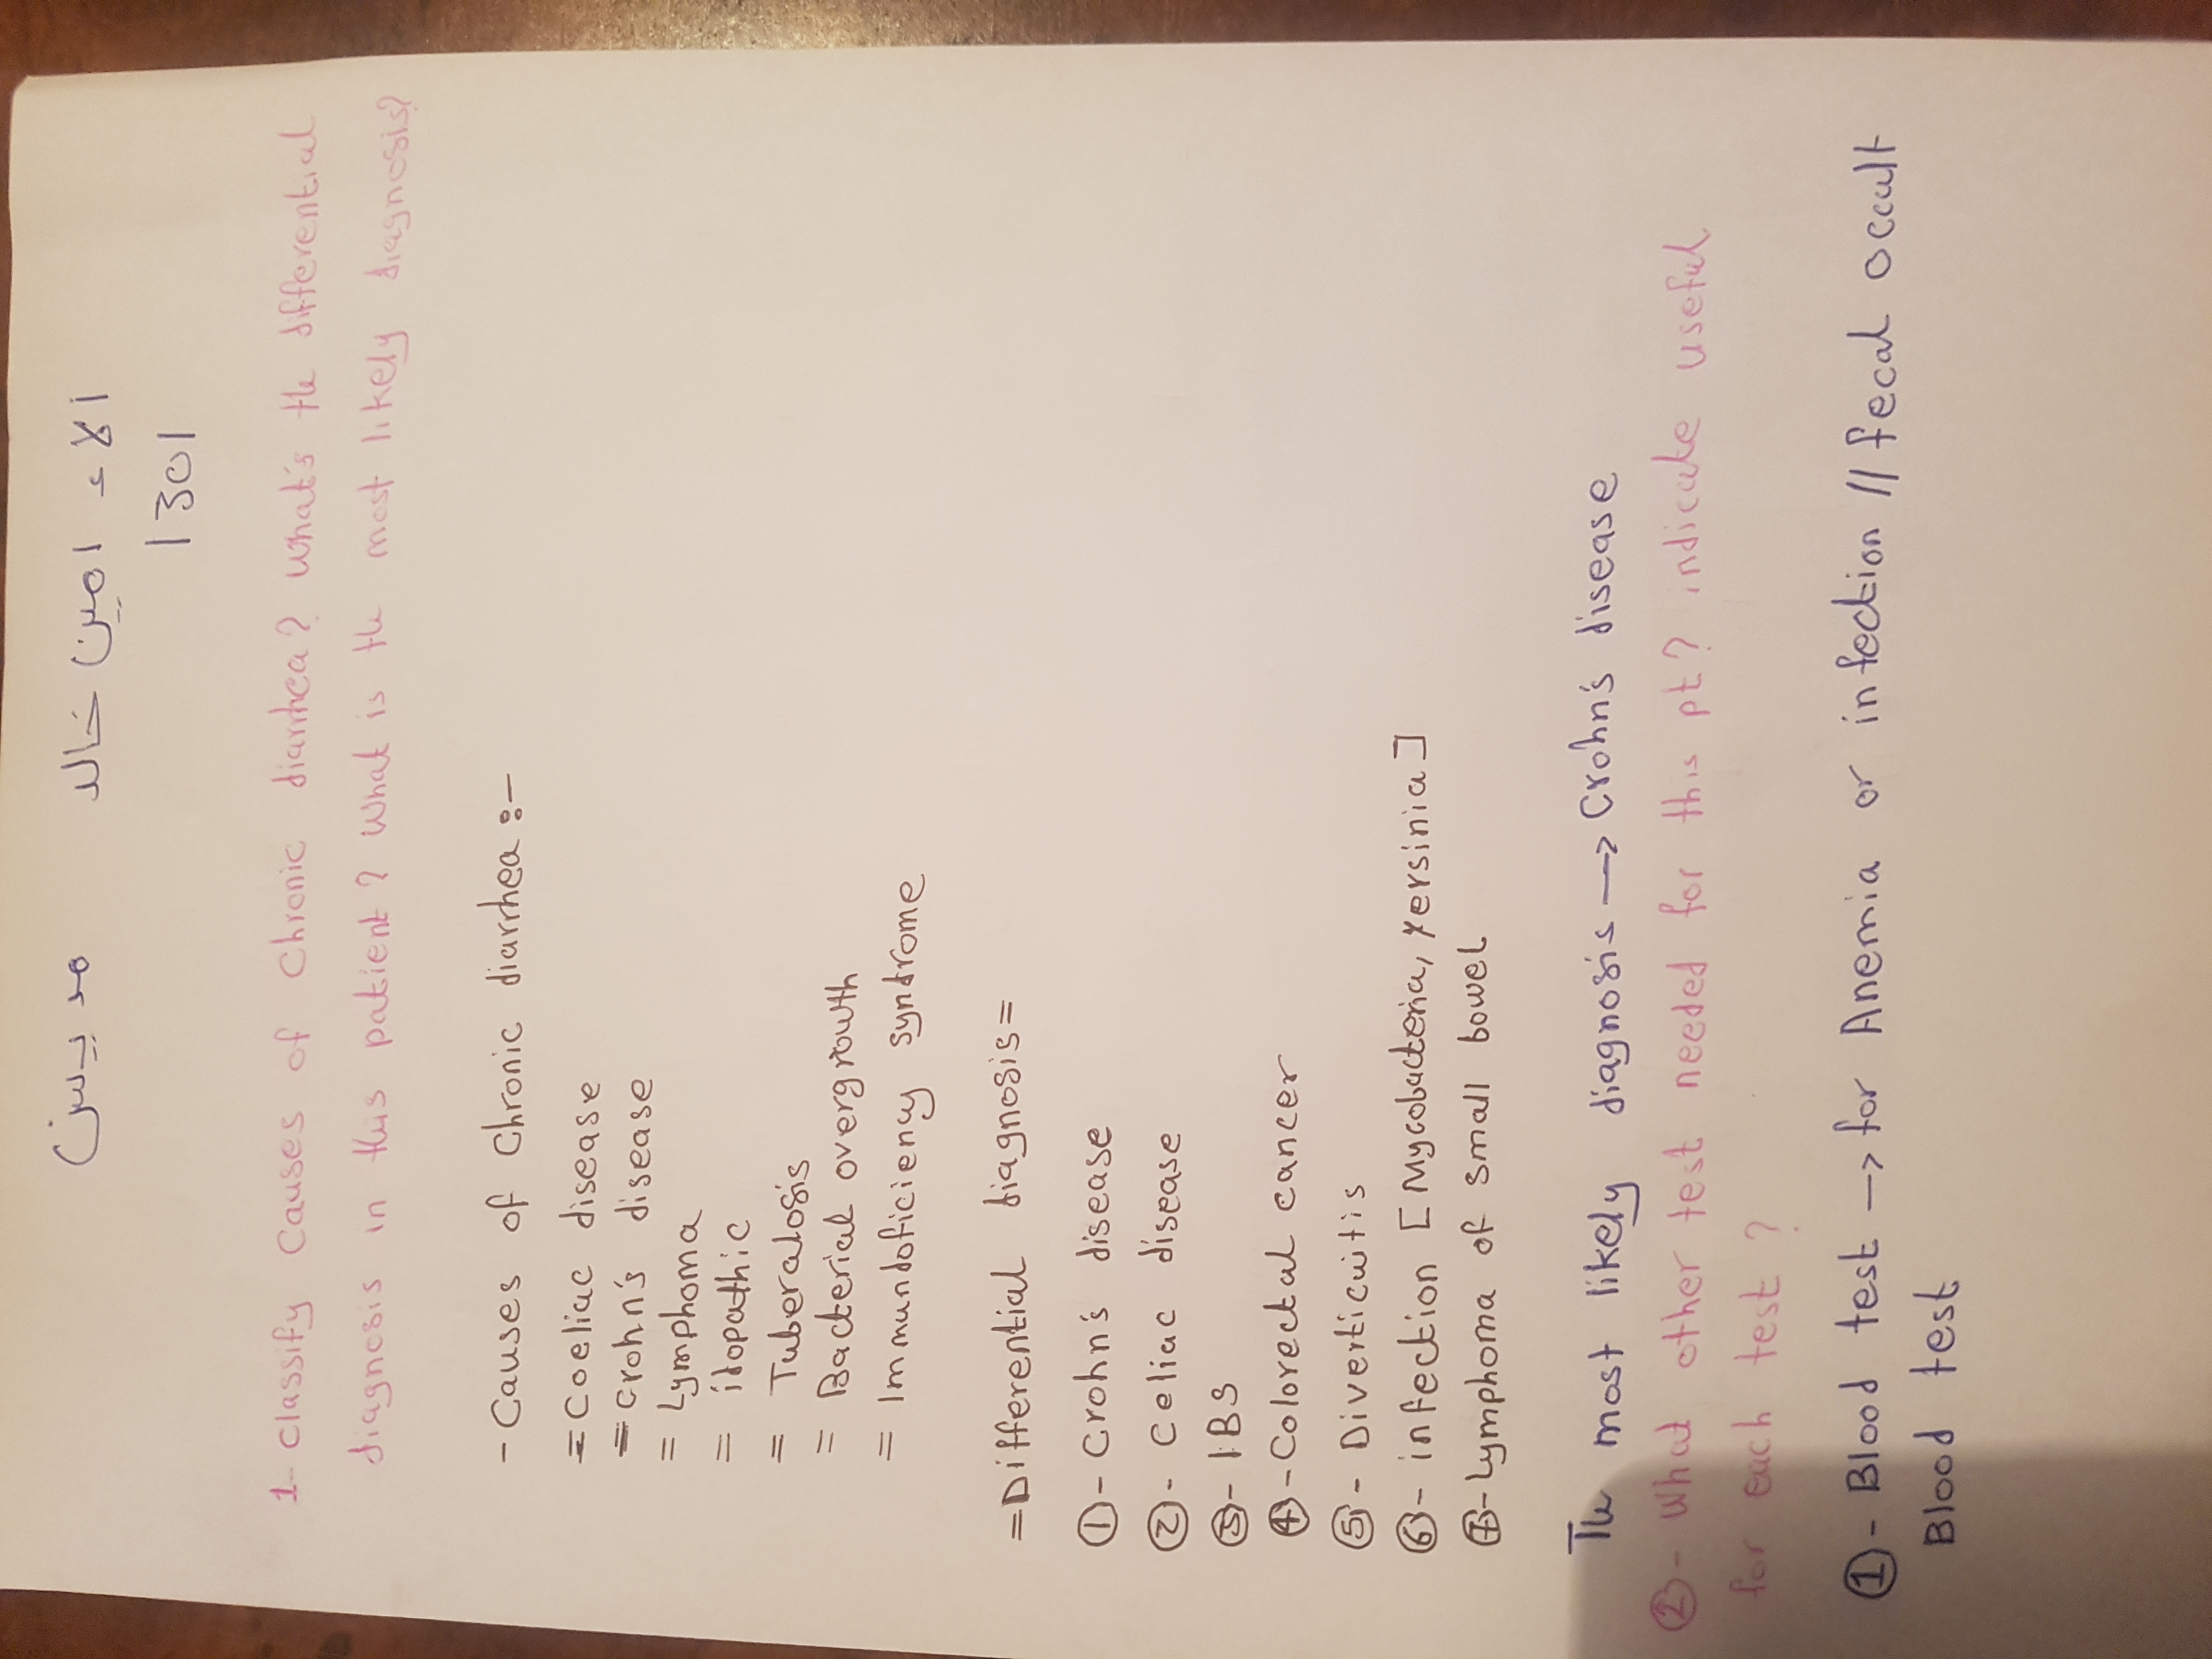 آلاء امين خالد مد يسن
1301
1- classify causes of chronic diarrhea? what's the differential
diagnosis in this patient? what is the most likely diagnosis?
- Causes of chronic diarrhea :-
= Coeliac disease
= crohn's disease
= Lymphoma
= idopathic
= Tuberalosis
= Bacterial overgrowth
= Immundoficieny syndrome
= Differential diagnosis =
①- Crohn's disease
②- Celiac disease
③- IBS
④- Colorectal cancer
⑤- Diverticuitis
⑥- infection [Mycobacteria, yersinia]
⑦- Lymphoma of small bowel
The most likely diagnosis → Crohn's disease
②- What other test needed for this pt? indicate useful
for each test?
①- Blood test → for Anemia or infection // fecal occult
Blood test